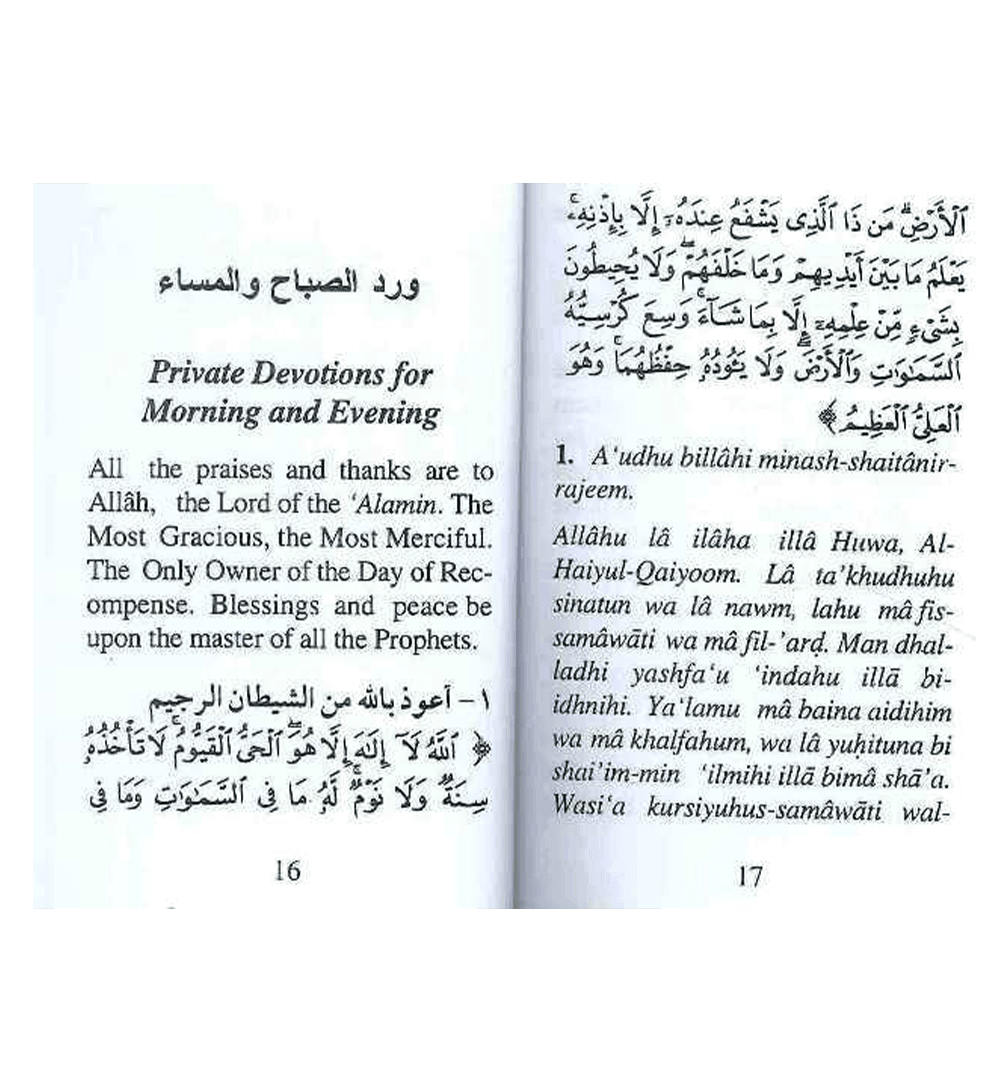 ورد الصباح والمساء
Private Devotions for
Morning and Evening
All the praises and thanks are to
Allâh, the Lord of the ‘Alamin. The
Most Gracious, the Most Merciful.
The Only Owner of the Day of Rec-
ompense. Blessings and peace be
upon the master of all the Prophets.
١ – آعوذ بالله من الشيطان الرجيم
﴿ ٱللَّهُ لَآ إِلَٰهَ إِلَّا هُوَ ٱلْحَىُّ ٱلْقَيُّومُ ۚ لَا تَأْخُذُهُۥ
سِنَةٌ وَلَا نَوْمٌ ۚ لَّهُۥ مَا فِى ٱلسَّمَٰوَٰتِ وَمَا فِى
16
ٱلْأَرْضِ ۗ مَن ذَا ٱلَّذِى يَشْفَعُ عِندَهُۥٓ إِلَّا بِإِذْنِهِۦ ۚ
يَعْلَمُ مَا بَيْنَ أَيْدِيهِمْ وَمَا خَلْفَهُمْ ۖ وَلَا يُحِيطُونَ
بِشَىْءٍ مِّنْ عِلْمِهِۦٓ إِلَّا بِمَا شَآءَ ۚ وَسِعَ كُرْسِيُّهُ
ٱلسَّمَٰوَٰتِ وَٱلْأَرْضَ ۖ وَلَا يَـُٔودُهُۥ حِفْظُهُمَا ۚ وَهُوَ
ٱلْعَلِىُّ ٱلْعَظِيمُ ﴾
1. A‘udhu billâhi minash-shaitânir-
rajeem.
Allâhu lâ ilâha illâ Huwa, Al-
Haiyul-Qaiyoom. Lâ ta’khudhuhu
sinatun wa lâ nawm, lahu mâ fis-
samâwāti wa mâ fil-’arḍ. Man dhal-
ladhi yashfa‘u ‘indahu illā bi-
idhnihi. Ya‘lamu mâ baina aidihim
wa mâ khalfahum, wa lâ yuḥituna bi
shai’im-min ‘ilmihi illā bimâ shā’a.
Wasi‘a kursiyuhus-samâwāti wal-
17